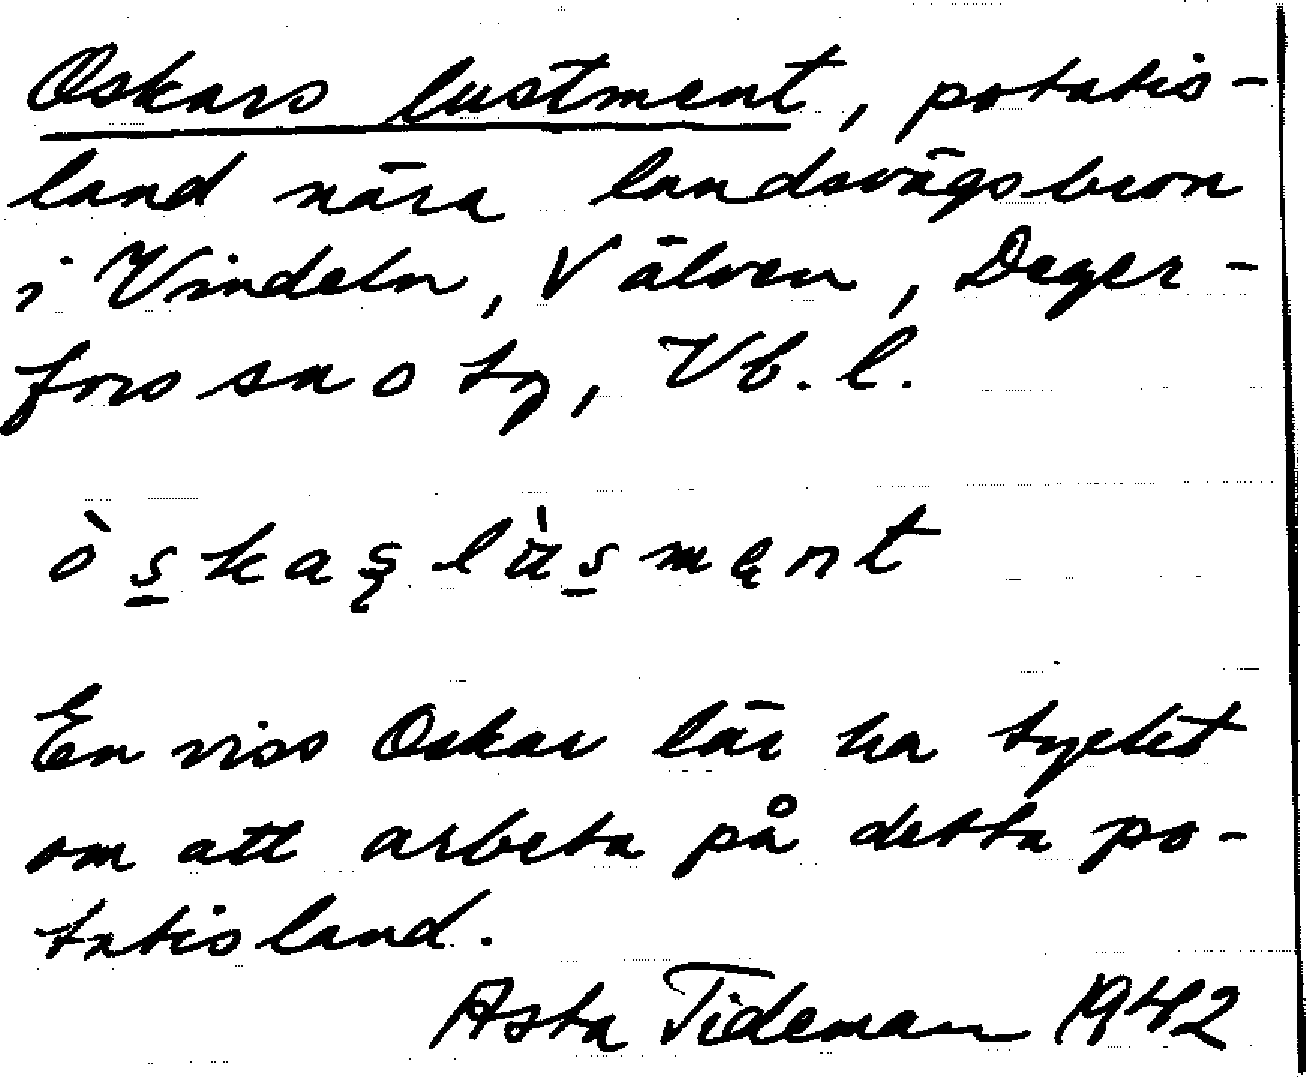 Oskars lustment, potatis-
land nära landsvägsbron
i Vindeln, V älven, Deger-
fors sn o tg, Vb. l.
ò s̲ k a ş l ù̈ s̲ m ę n t
En viss Oskar lär ha tyckt
om att arbeta på detta po-
tatisland.
Asta Tideman 1942